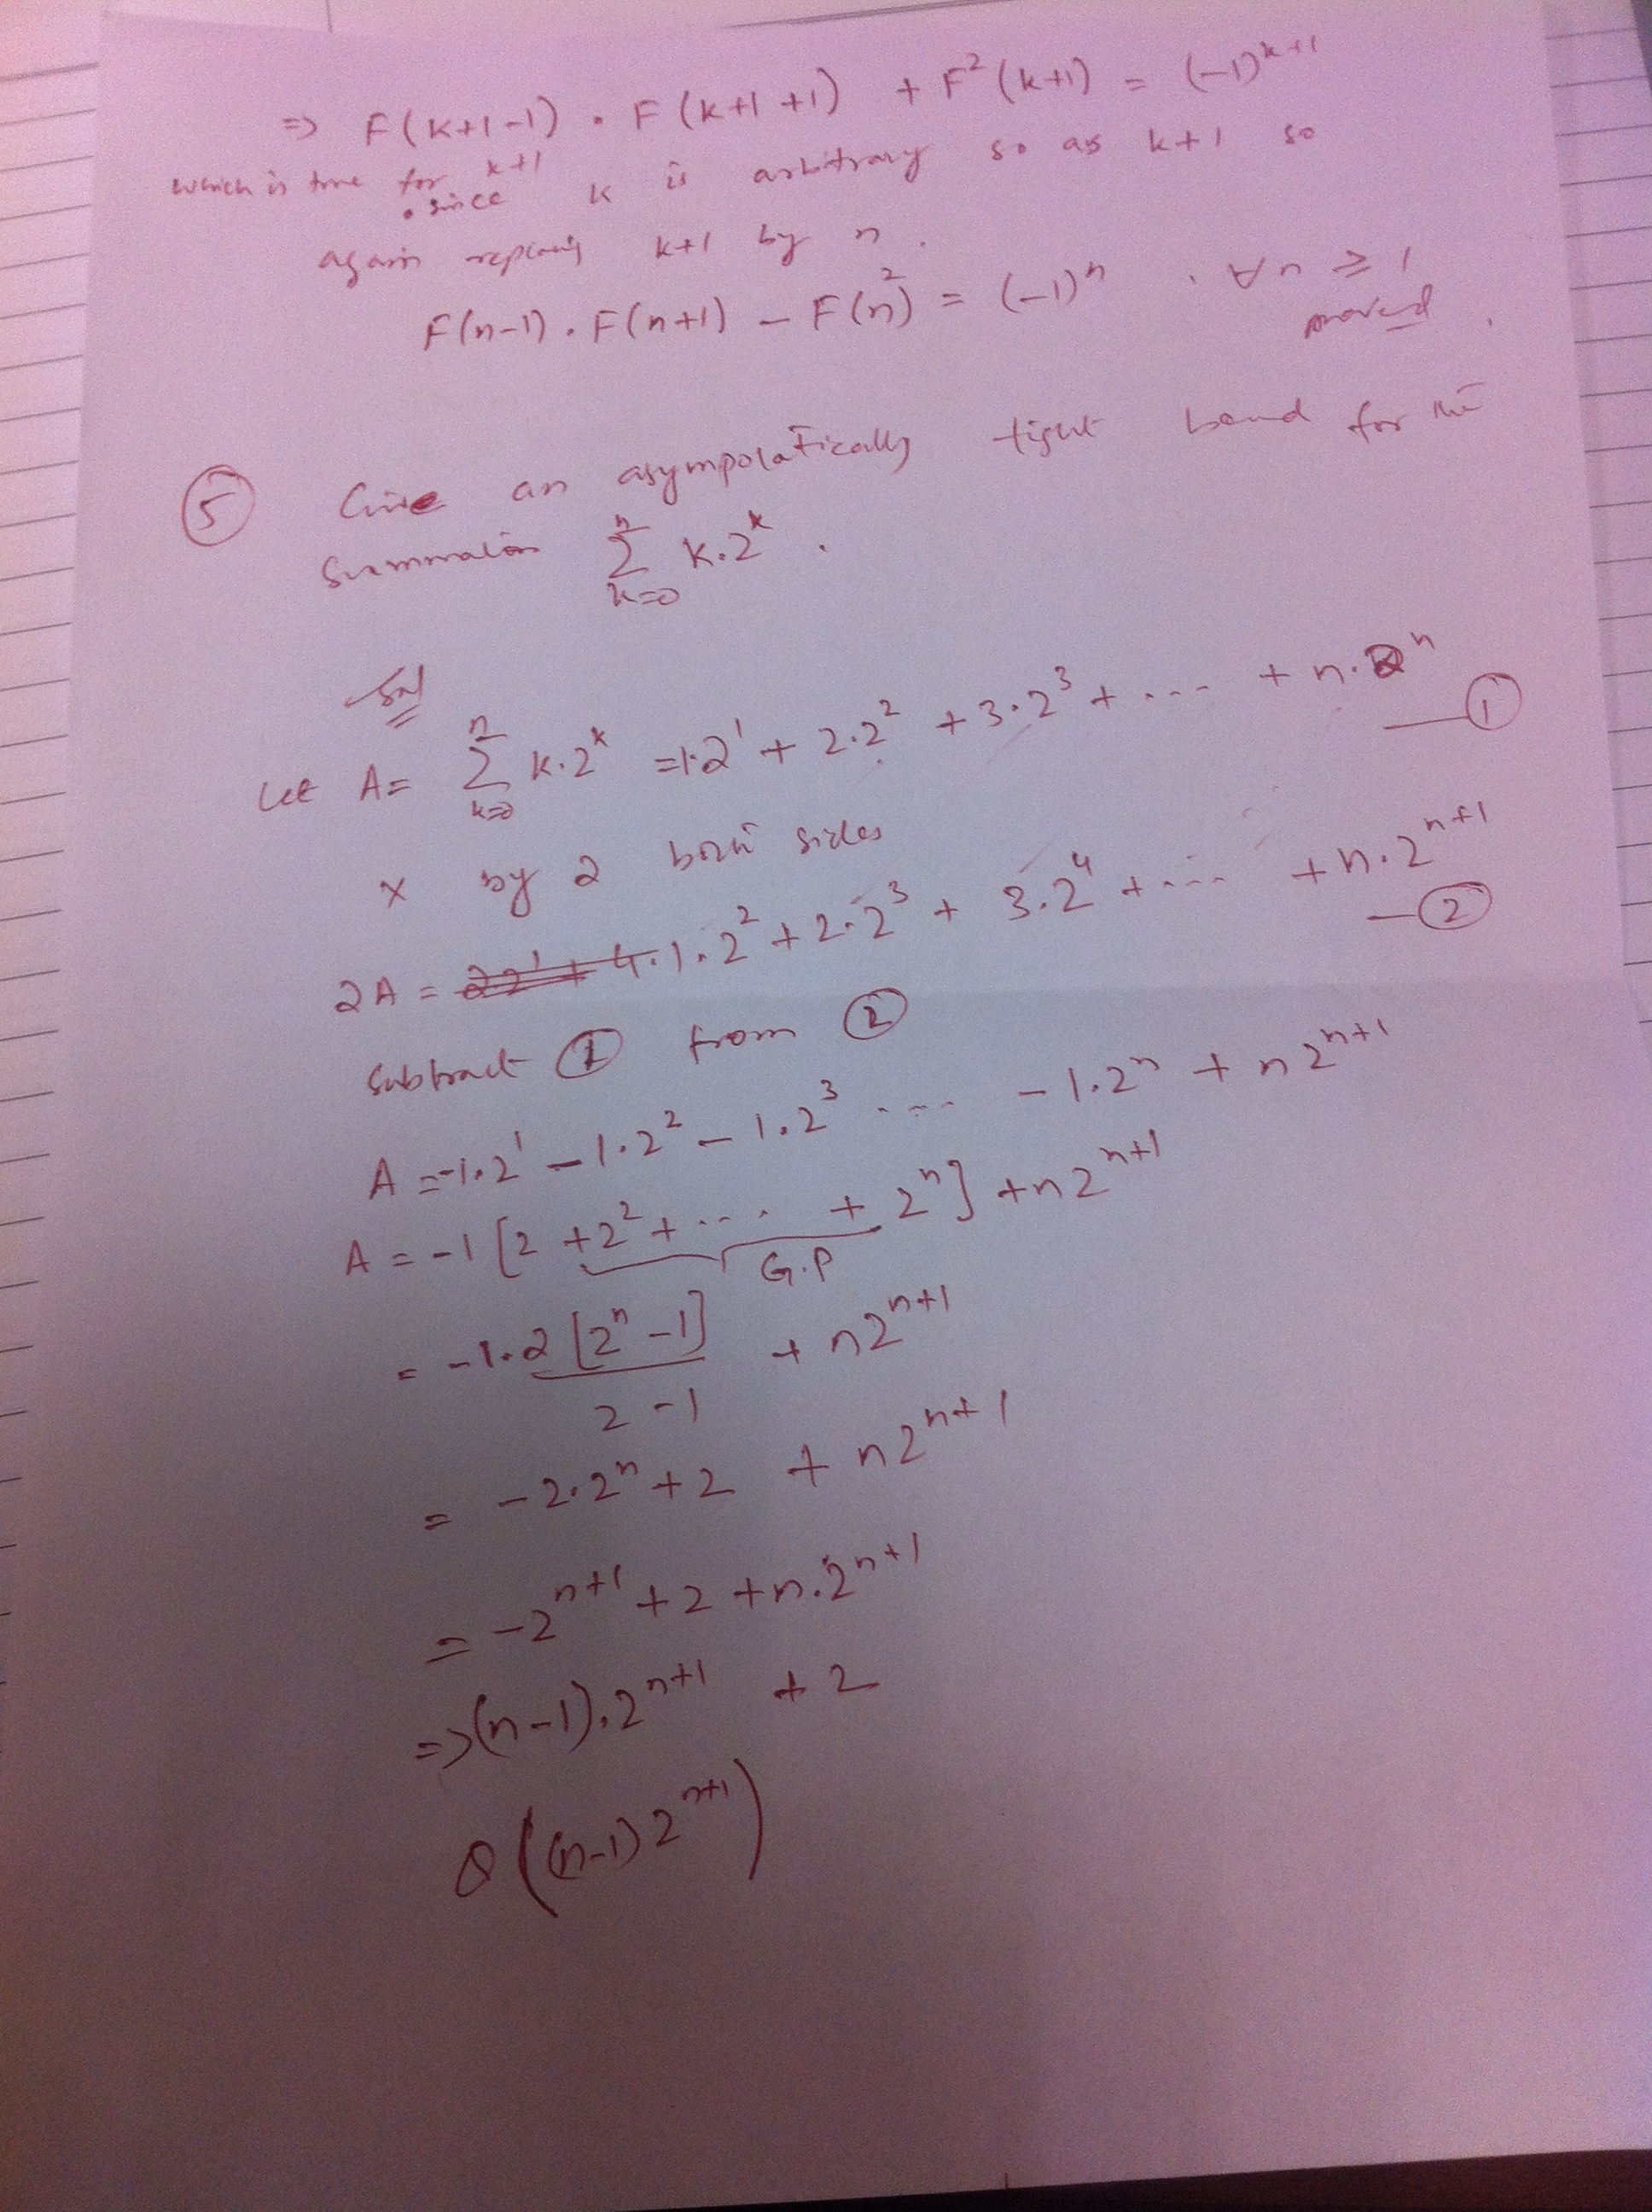 => F(k+1-1) . F(k+1+1) + F²(k+1) = (-1)^{k+1}
which is true for k+1 . since k is arbitrary so as k+1 so
again replacing k+1 by n .
F(n-1) . F(n+1) - F(n)² = (-1)^n , ∀n ≥ 1
proved .
⑤ Give an asympolatically tight bound for the
Summation ∑_{k=0}^{n} k.2^k .
Sol
Let A = ∑_{k=0}^{n} k.2^k = 1.2^1 + 2.2^2 + 3.2^3 + .... + n.2^n
— ①
x by 2 both sides
2A = 1.2^2 + 2.2^3 + 3.2^4 + .... + n.2^{n+1}
— ②
Subtract ① from ②
A = -1.2^1 - 1.2^2 - 1.2^3 .... - 1.2^n + n2^{n+1}
A = -1 [2 + 2^2 + .... + 2^n] + n2^{n+1}
G.P
= -1.2 [2^n - 1] / 2-1 + n2^{n+1}
= -2.2^n + 2 + n2^{n+1}
= -2^{n+1} + 2 + n.2^{n+1}
=> (n-1).2^{n+1} + 2
θ((n-1)2^{n+1})